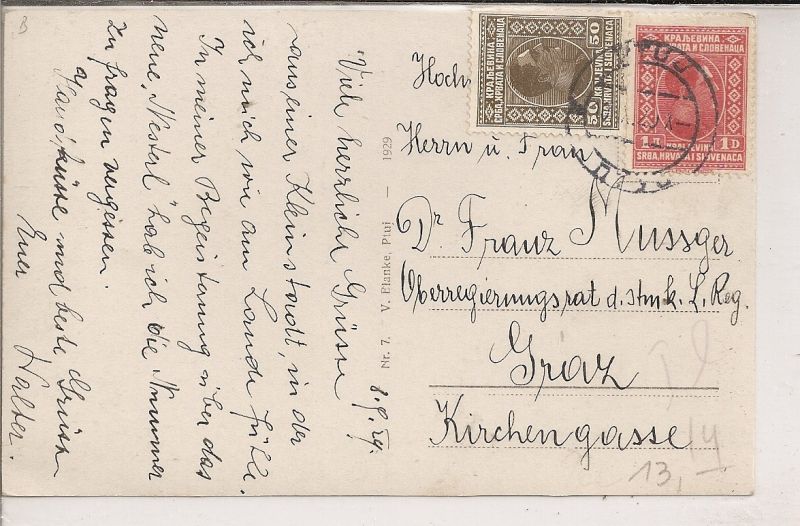 B
Viele herrliche Grüsse 8.9.29.
aus einer Kleinstadt, in der
ich mich wie am Lande fühle.
In meiner Begeisterung über das
neue „Nesterl" hab ich die Nummer
zu fragen vergessen.
Handküsse und beste Grüsse
Euer Walter.
Nr. 7. V. Blanke, Ptuj — 1929
КРАЉЕВИНА
СРБА, ХРВАТА И СЛОВЕНАЦА
50 50
KRALJEVINA
SRBA, HRVATA I SLOVENACA
КРАЉЕВИНА
СРБА, ХРВАТА И СЛОВЕНАЦА
1 D
KRALJEVINA
SRBA, HRVATA I SLOVENACA
PTUJ
Hochw
Herrn u. Frau
Dr Franz Mussger
Oberregierungsrat d. stmk. L. Reg.
Graz
Kirchengasse 14
13,-